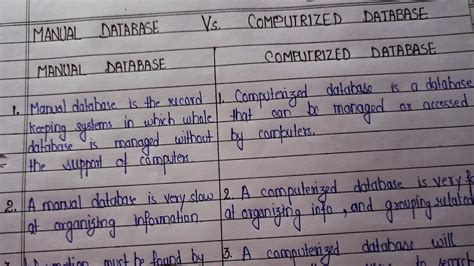 MANUAL DATABASE Vs. COMPUTRIZED DATABASE
MANUAL DATABASE
1. Manual database is the record
keeping systems in which whole
database is managed without
the support of computers.
2. A manual database is very slow
at organizing information.
must be found by
COMPUTRIZED DATABASE
1. Computerized database is a database
that can be managed or accessed
by computers.
2. A computerized database is very
at organizing info, and grouping related
3. A computerized database will
to search